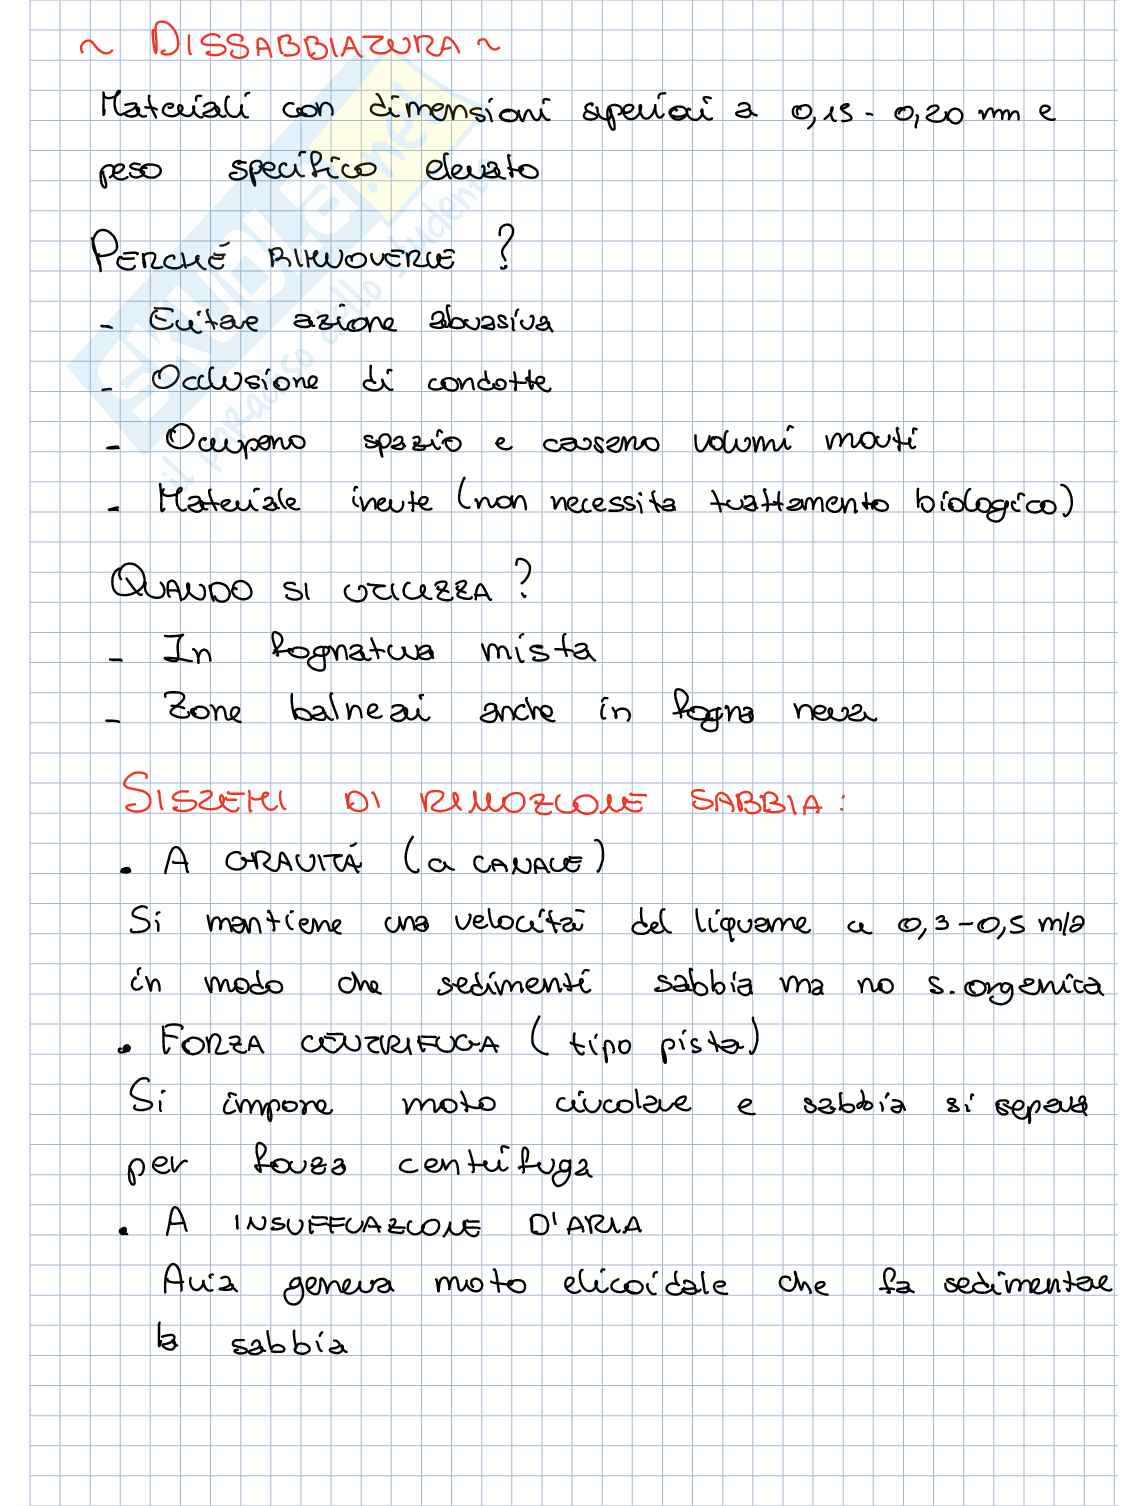 ~ DISSABBIAZURA ~
Materiali con dimensioni superiori a 0,15 - 0,20 mm e
peso specifico elevato
PERCHÉ RIMUOVERLE ?
- Evitare azione abrasiva
- Occlusione di condotte
- Occupano spazio e causano volumi morti
- Materiale inerte (non necessita trattamento biologico)
QUANDO SI UTILIZZA ?
- In fognatura mista
- Zone balneari anche in fogna nera
SISTEMI DI RIMOZIONE SABBIA:
• A GRAVITÁ (a CANALE)
Si mantiene una velocità del liquame a 0,3-0,5 m/s
in modo che sedimenti sabbia ma no s. organica
• FORZA CENTRIFUGA ( tipo pista)
Si impone moto circolare e sabbia si separa
per forza centrifuga
• A INSUFFLAZIONE D'ARIA
Aria genera moto elicoidale che fa sedimentare
la sabbia
SKUOLA.net
il paradiso dello studente